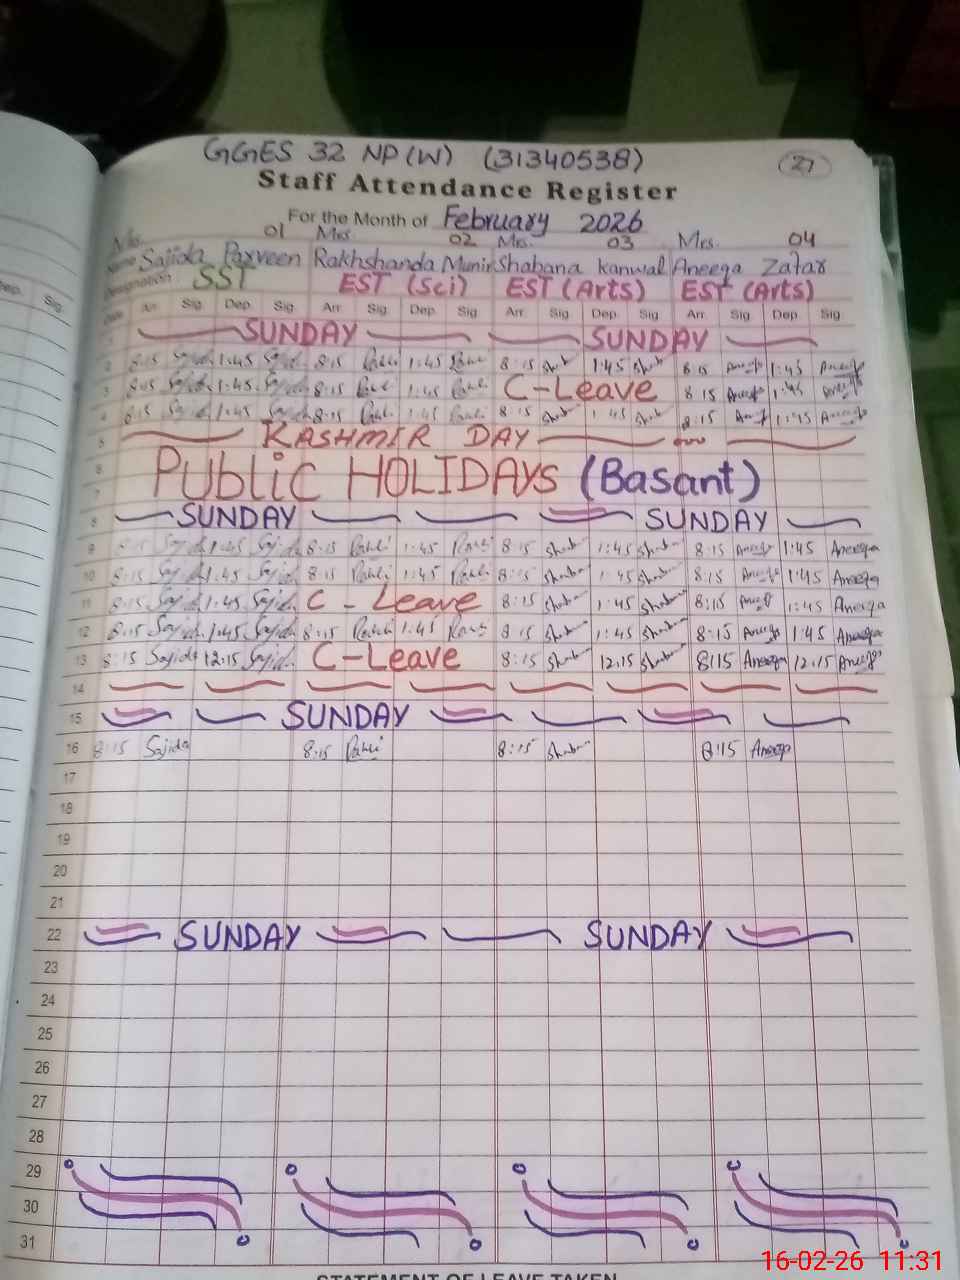 GGES 32 NP(W) (31340538) 27
Staff Attendance Register
For the Month of February 2026
Mrs. 01 Mrs 02 Mrs. 03 Mrs. 04
Name Sajida Parveen Rakhshanda Munir Shabana Kanwal Aneeqa Zafar
Designation SST EST (Sci) EST (Arts) EST (Arts)
Date Arr. Sig Dep. Sig Arr. Sig Dep. Sig Arr. Sig Dep. Sig Arr. Sig Dep. Sig
1 SUNDAY SUNDAY
2 8:15 Sajida 1:45 Sajida 8:15 1:45 8:15 1:45 8:15 1:45
3 8:15 Sajida 1:45 Sajida 8:15 1:45 C-Leave 8:15 1:45
4 8:15 Sajida 1:45 Sajida 8:15 1:45 8:15 1:45 8:15 1:45
5 KASHMIR DAY
6
7 PUBLIC HOLIDAYS (Basant)
8 SUNDAY SUNDAY
9 8:15 Sajida 1:45 Sajida 8:15 1:45 8:15 1:45 8:15 1:45 Aneeqa
10 8:15 Sajida 1:45 Sajida 8:15 1:45 8:15 1:45 8:15 1:45 Aneeqa
11 8:15 Sajida 1:45 Sajida C-Leave 8:15 1:45 8:15 1:45 Aneeqa
12 8:15 Sajida 1:45 Sajida 8:15 1:45 8:15 1:45 8:15 1:45 Aneeqa
13 8:15 Sajida 12:15 Sajida C-Leave 8:15 12:15 8:15 Aneeqa 12:15 Aneeqa
14
15 SUNDAY
16 8:15 Sajida 8:15 8:15 8:15 Aneeqa
17
18
19
20
21
22 SUNDAY SUNDAY
23
24
25
26
27
28
29
30
31
STATEMENT OF LEAVE TAKEN
16-02-26 11:31